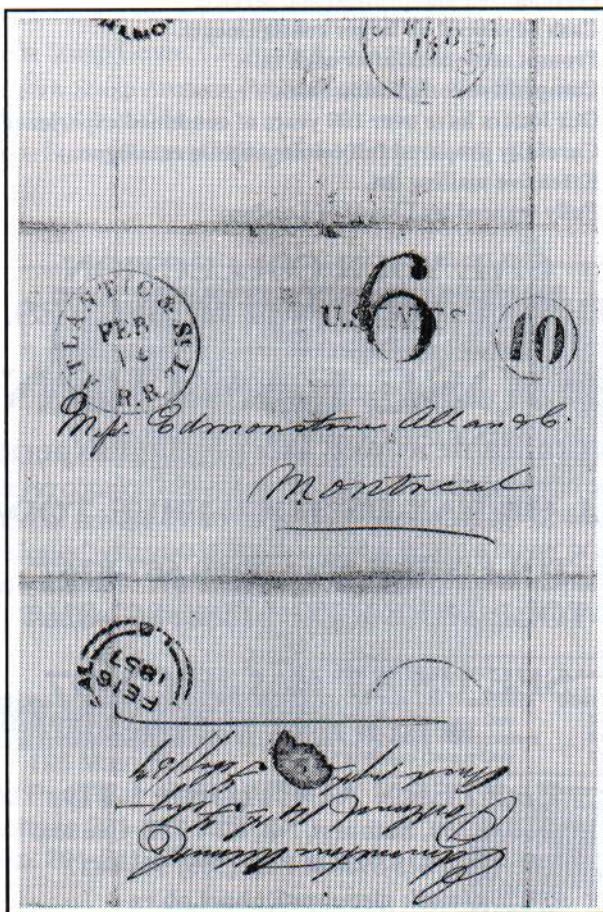 FEB
ATLANTIC & St. L. R.R.
FEB
14
U.STATES
6
10
Edmonstone Allan & Co.
Montreal
FE 16
1857
Edmonstone Allan & Co
Portland 14th Feby
Feby/57